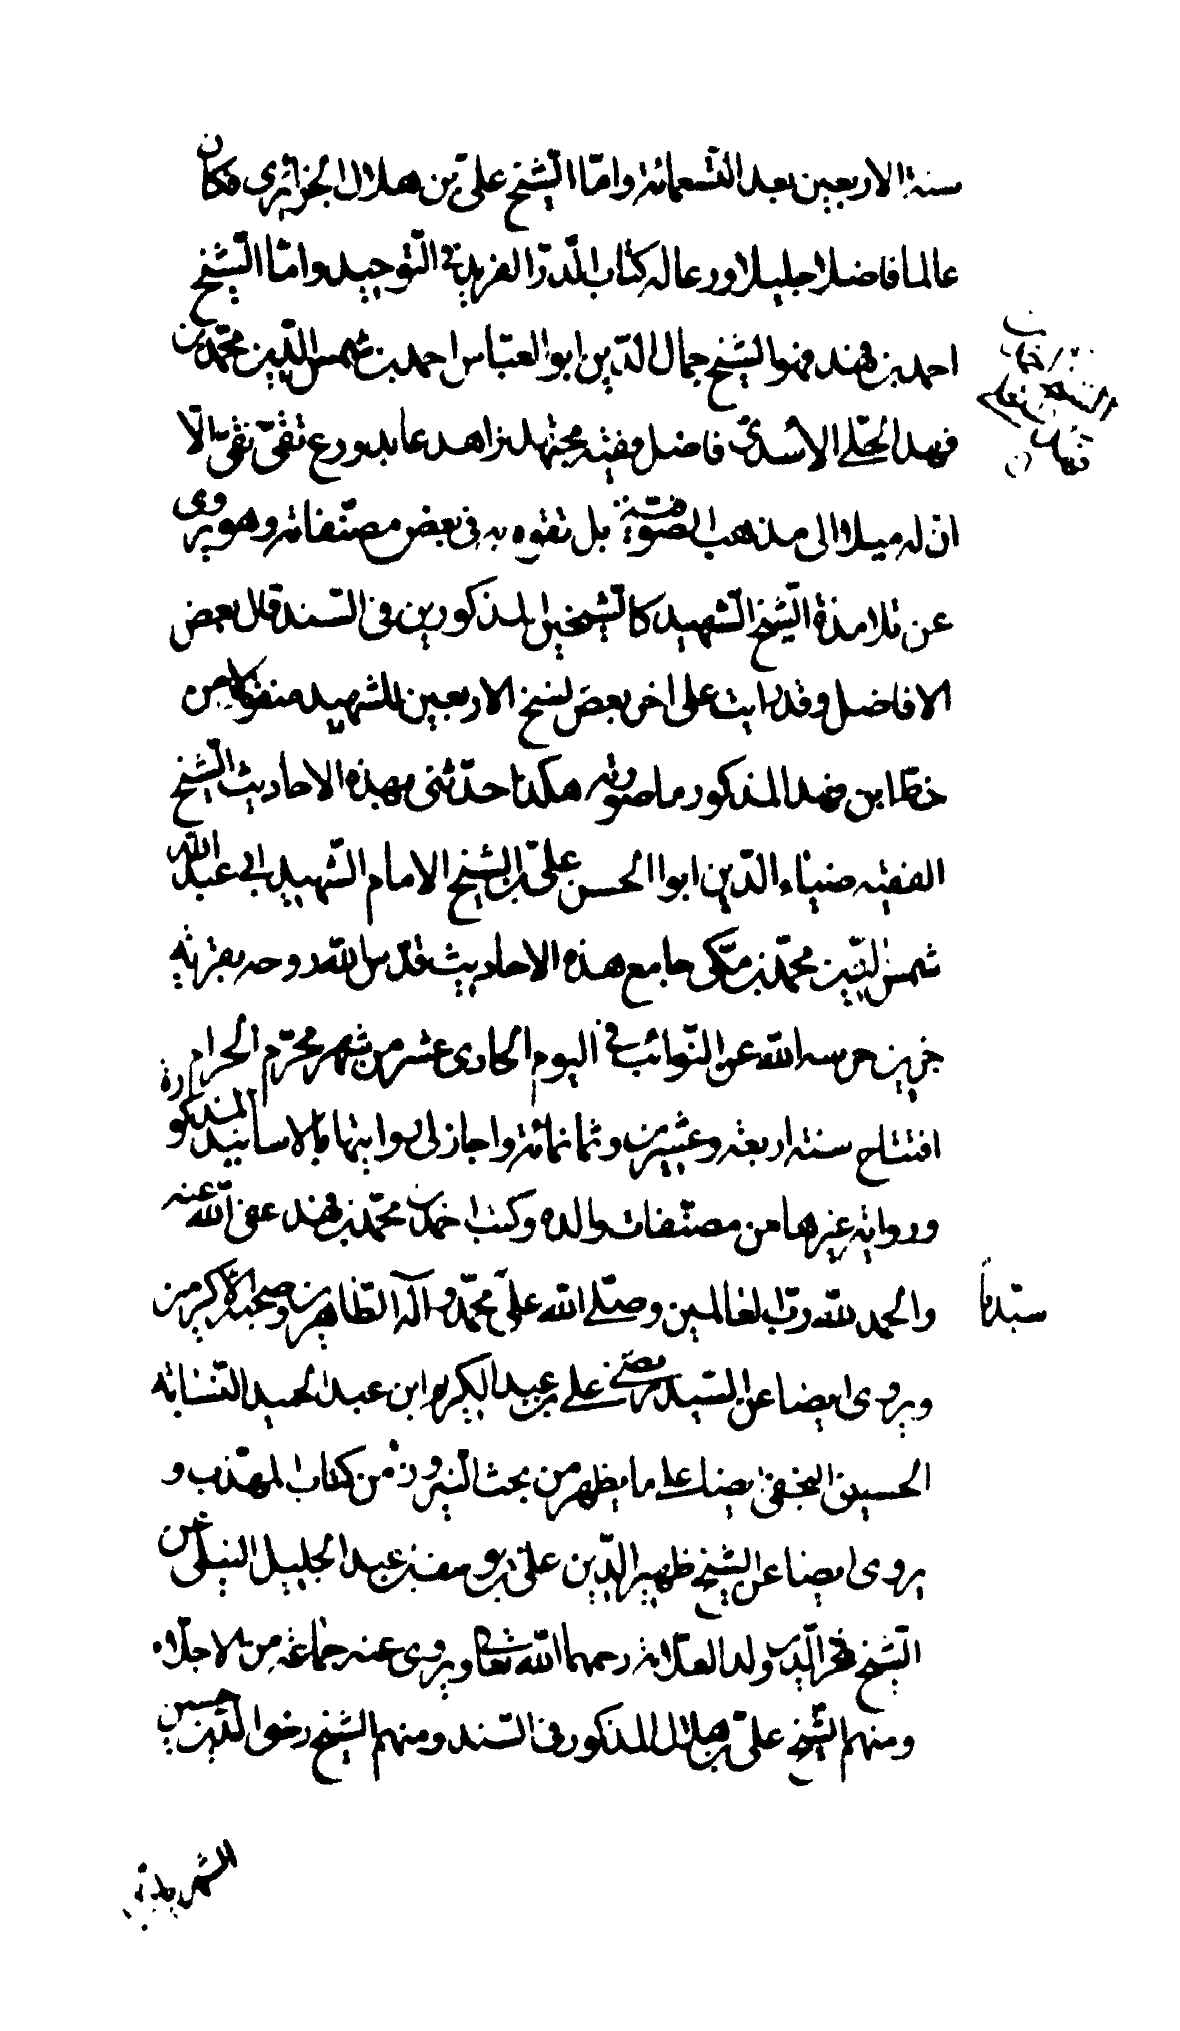 سنة الاربعين بعد التسعمائة واما الشيخ على بن هلال الجزائرى فكان
عالما فاضلا جليلا ورعا له كتاب الدر الفريد فى التوحيد واما الشيخ
احمد بن فهد فهو الشيخ جمال الدين ابو العباس احمد بن شمس الدين محمد بن
فهد الحلي الأسدى فاضل فقيه مجتهد زاهد عابد ورع تقى نقى الا
ان له ميلا الى مذهب الصوفية بل تفوه به فى بعض مصنفاته وهو يروى
عن تلامذة الشيخ الشهيد كالشيخين المذكورين فى السند قال بعض
الافاضل وقد رايت على اخر بعض نسخ الاربعين للشهيد منقولا من
خط ابن فهد المذكور ما صورته هكذا حدثنى بهذه الاحاديث الشيخ
الفقيه ضياء الدين ابو الحسن على بن الشيخ الامام الشهيد ابى عبد الله
شمس الدين محمد بن مكى جامع هذه الاحاديث قدس الله روحه بقرية
جزين حرسه الله عن النوائب فى اليوم الحادى عشر من شهر محرم الحرام
افتتاح سنة اربعة وعشرين وثمانمائة واجاز لى روايتها بالاسانيد المذكورة
ورواية غيرها من مصنفات والده وكتب احمد بن محمد بن فهد عفى الله عنه
والحمد لله رب العالمين وصلى الله على محمد وآله الطاهرين وصحبه الاكرمين
ويروى ايضا عن السيد مرتضى على بن عبد الكريم ابن عبد الحميد النسابة
الحسينى النجفى ايضا على ما يظهر من بحث النيروز من كتاب المهذب و
يروى ايضا عن الشيخ ظهير الدين على بن يوسف بن عبد الجليل النيلى عن
الشيخ فخر الدين ولد العلامة رحمهما الله تعالى ويروى عنه جماعة من الاجلاء
ومنهم الشيخ على بن هلال المذكور فى السند ومنهم الشيخ رضى الدين حسين
الشهير بابن